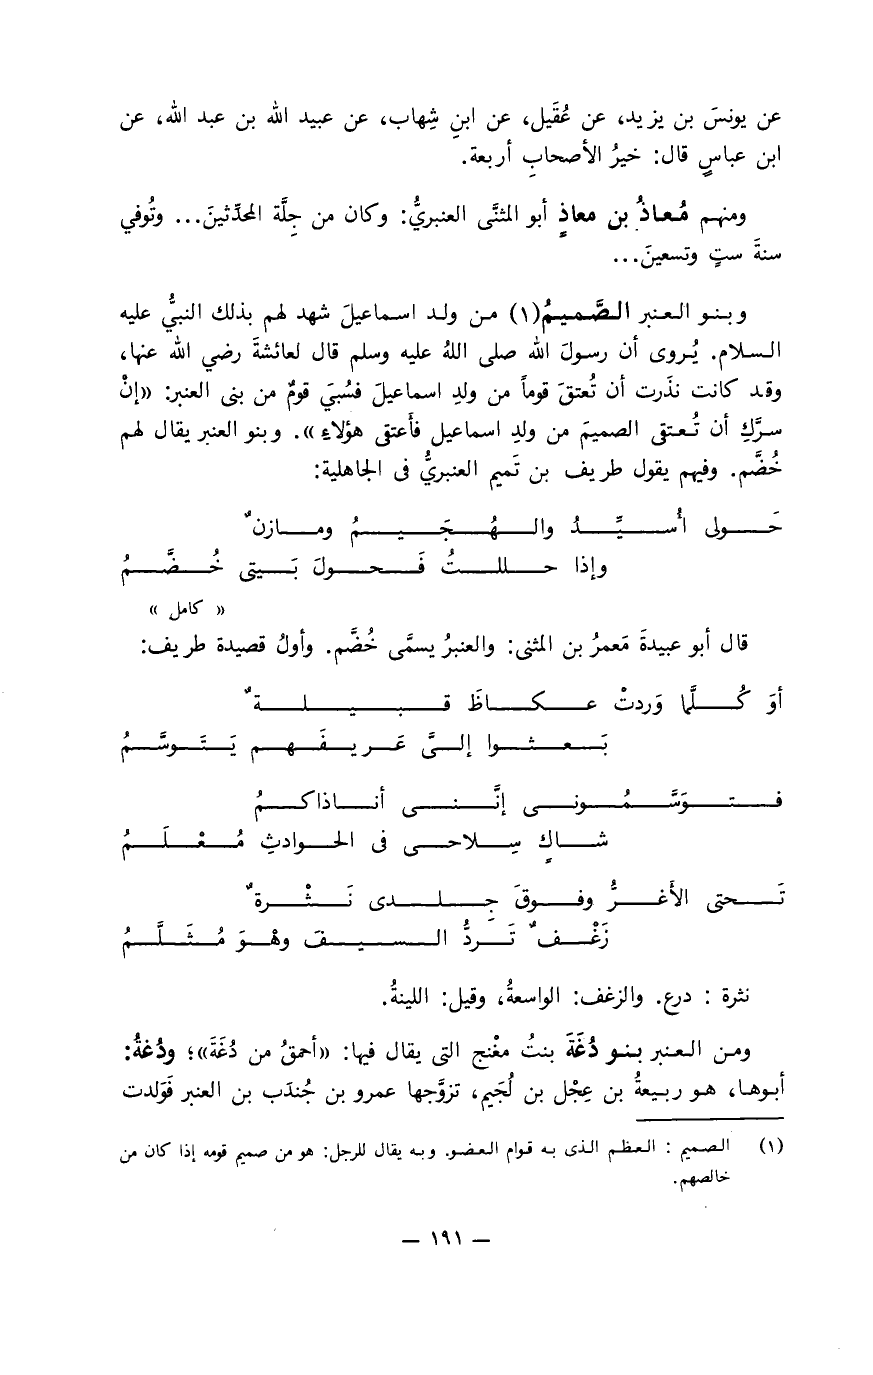 عن يونسَ بن يزيد، عن عُقَيل، عن ابنِ شِهاب، عن عبيد الله بن عبد الله، عن
ابن عباسٍ قال: خيرُ الأصحابِ أربعة.
ومنهم مُعاذُ بن معاذٍ أبو المثنَّى العنبريُّ: وكان من جِلَّة المحدِّثينَ... وتُوفي
سنةَ ستٍ وتسعينَ...
وبنو العنبر الصَّميمُ(١) من ولد اسماعيلَ شهد لهم بذلك النبيُّ عليه
السلام. يُروى أن رسولَ الله صلى اللهُ عليه وسلم قال لعائشةَ رضي الله عنها،
وقد كانت نذَرت أن تُعتقَ قوماً من ولدِ اسماعيلَ فسُبيَ قومٌ من بنى العنبر: «إنْ
سرَّكِ أن تُعتقى الصميمَ من ولدِ اسماعيل فأَعتقى هؤلاءِ». وبنو العنبر يقال لهم
خُضَّم. وفيهم يقول طريف بن تَميم العنبريُّ فى الجاهلية:
حَولى أُسيِّدُ والهُجَيمُ ومازنٌ
وإذا حللتُ فَحولَ بَيتى خُضَّمُ
« كامل »
قال أبو عبيدةَ مَعمرُ بن المثنى: والعنبرُ يسمَّى خُضَّم. وأولُ قصيدة طريف:
أوَ كُلَّما وَردتْ عكاظَ قبيلةٌ
بَعثوا إلىَّ عَريفَهم يَتَوسَّمُ
فتوَسَّمُونى إنَّنى أناذاكمُ
شاكٍ سِلاحى فى الحوادثِ مُعْلَمُ
تَحتى الأَغرُّ وفوقَ جِلدى نَثْرةٌ
زَغْفٌ تَردُّ السيفَ وهْوَ مُثَلَّمُ
نثرة : درع. والزغف: الواسعةُ، وقيل: اللينةُ.
ومن العنبر بنو دُغَةَ بنتُ مغْنج التى يقال فيها: «أحمقُ من دُغَةَ»؛ ودُغةُ:
أبوها، هو ربيعةُ بن عِجْل بن لُجَيم، تزوَّجها عمرو بن جُندَب بن العنبر فَولدت
(١) الصميم : العظم الذى به قوام العضو. وبه يقال للرجل: هو من صميم قومه إذا كان من
خالصهم.
— ١٩١ —